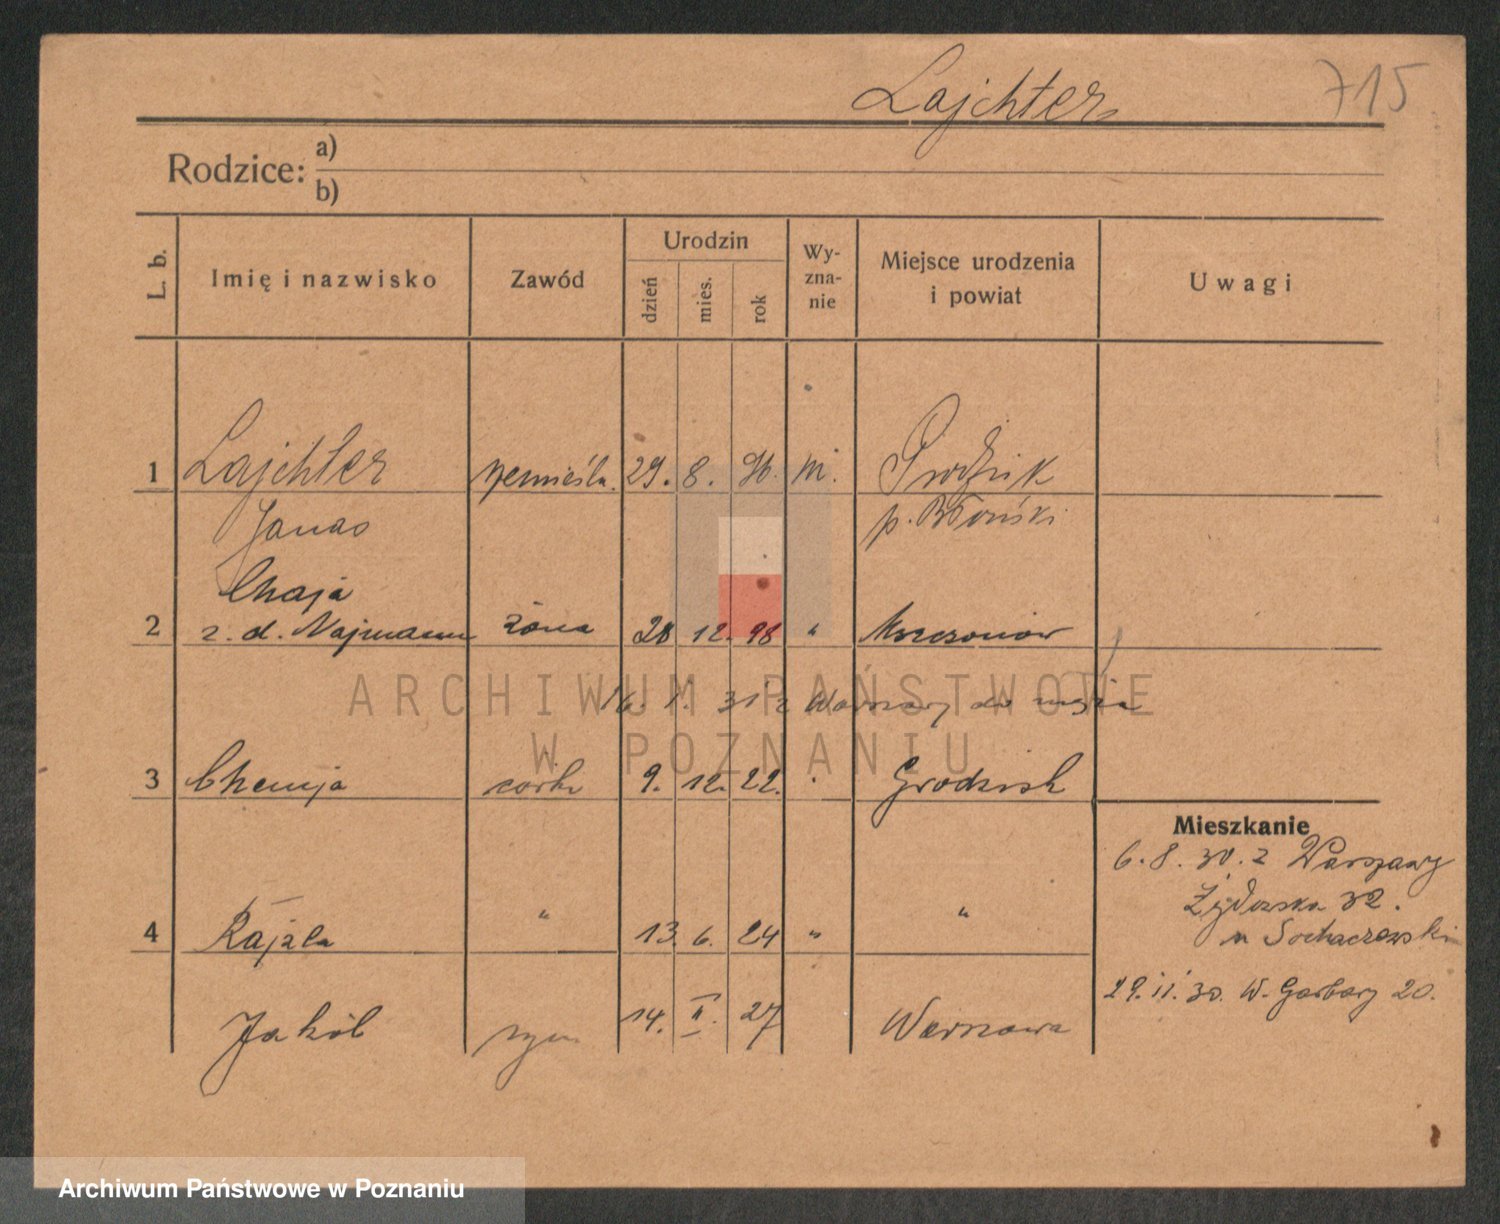 Lajchter 715
Rodzice: a)
b)
L. b. Imię i nazwisko Zawód Urodzin dzień mies. rok Wy-zna-nie Miejsce urodzenia i powiat Uwagi
1 Lajchter 29. 8. m.
Janas p. Błoński
Chaja
2 z. d. Najmann żona 28 12. 98 " Mszczonów
16. 1. 31 z Warszawy do męża
3 Chemja córka 9. 12. 22. Grodzisk
Mieszkanie
6. 8. 30. z Warszawy
Żydowska 32.
u Sochaczewski
4 Rajzla " 13. 6. 24 " "
29. 11. 30. W. Garbary 20.
Jakób syn 14. II. 27 Warszawa
ARCHIWUM PAŃSTWOWE
W POZNANIU
Archiwum Państwowe w Poznaniu